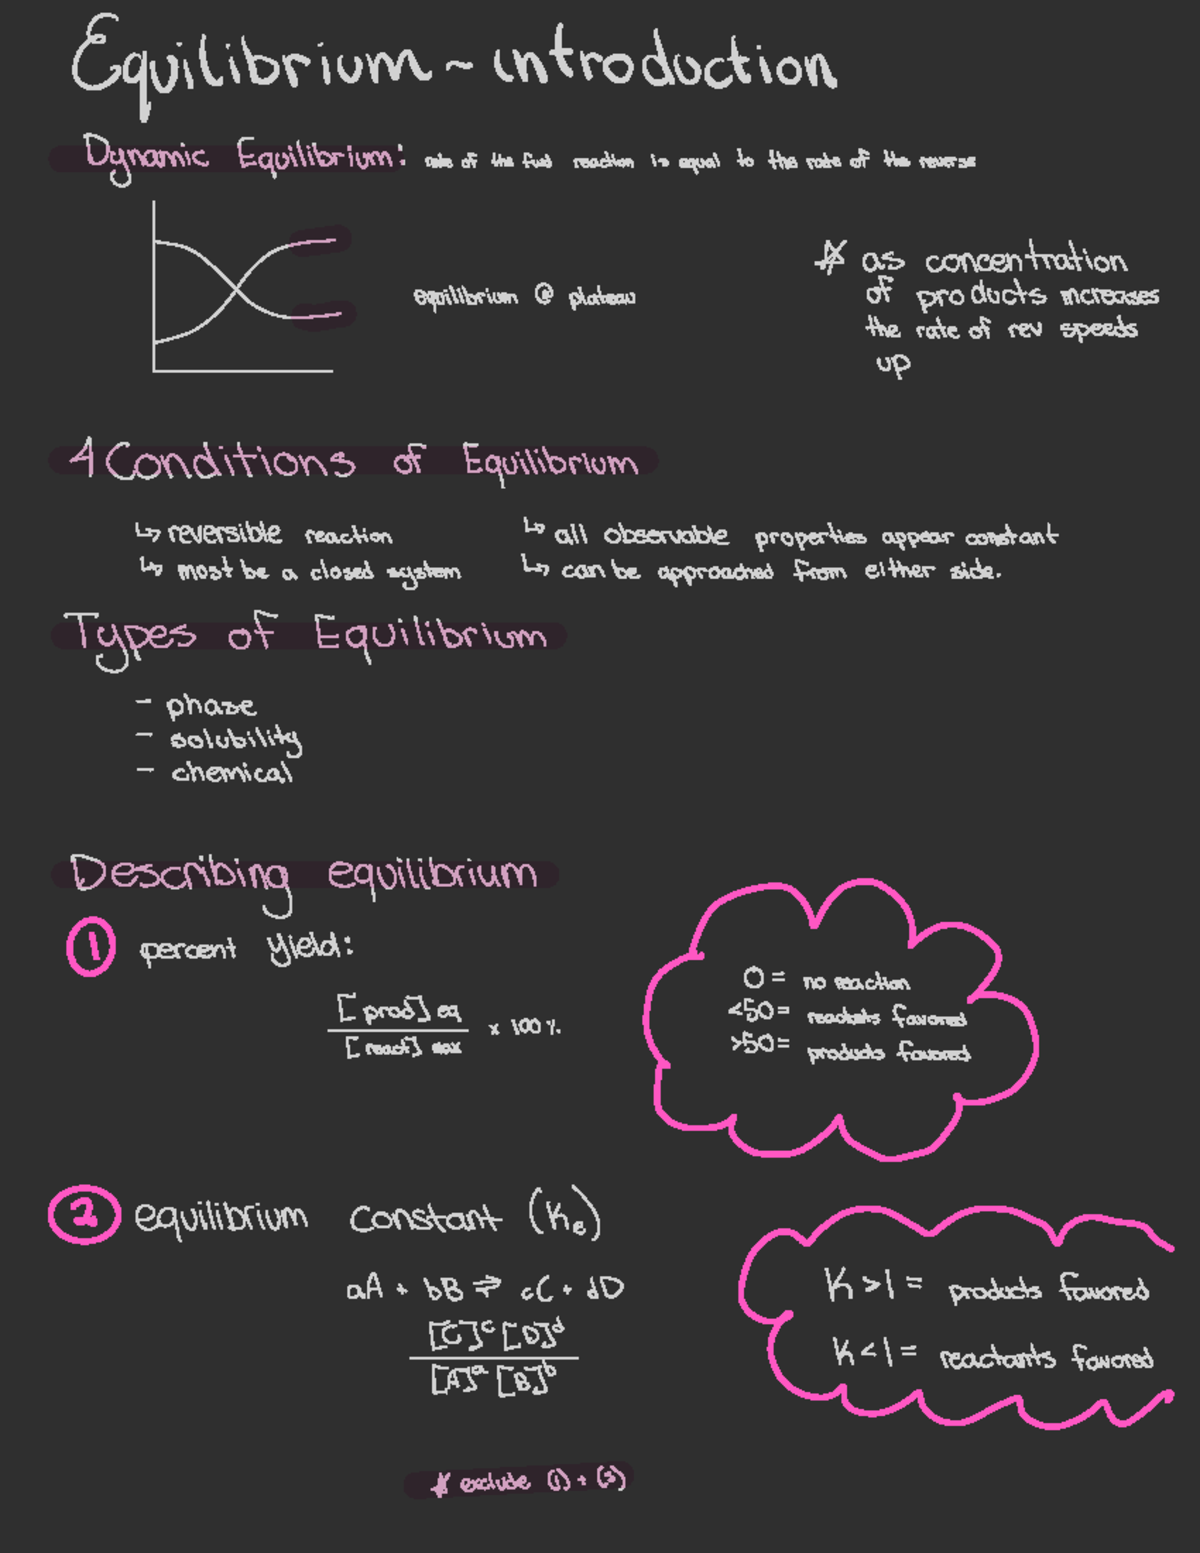 Equilibrium ~ introduction
Dynamic Equilibrium: rate of the fwd reaction is equal to the rate of the reverse
equilibrium @ plateau
* as concentration
of products increases
the rate of rev speeds
up
4 Conditions of Equilibrium
↳ reversible reaction
↳ most be a closed system
↳ all observable properties appear constant
↳ can be approached from either side.
Types of Equilibrium
- phase
- solubility
- chemical
Describing equilibrium
1 percent yield:
[prod] eq
[react] max
x 100%
0 = no reaction
<50 = reactants favored
>50 = products favored
2 equilibrium constant (Ke)
aA + bB ⇌ cC + dD
[C]ᶜ [D]ᵈ
[A]ᵃ [B]ᵇ
K > 1 = products favored
K < 1 = reactants favored
* exclude (l) + (s)